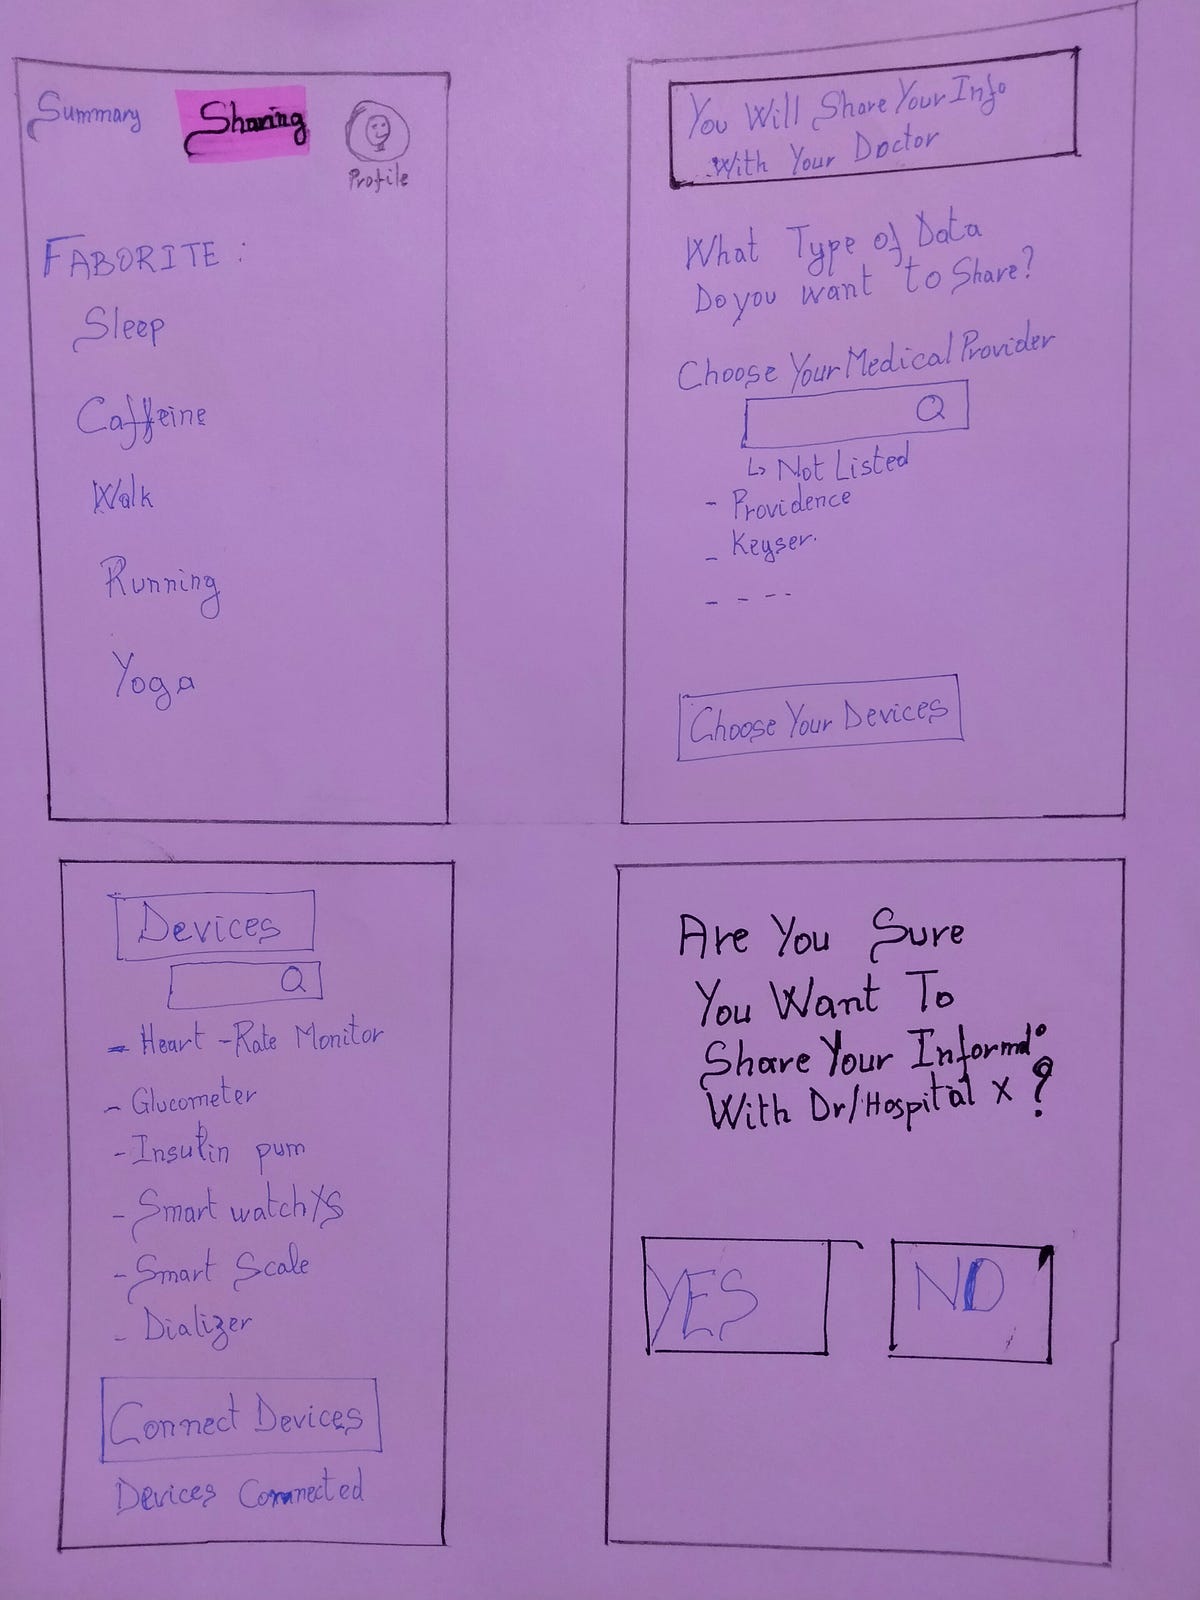 Summary Sharing
Profile
FABORITE :
Sleep
Caffeine
Walk
Running
Yoga
You Will Share Your Info
With Your Doctor
What Type of Data
Do you want to Share?
Choose Your Medical Provider
↳ Not Listed
- Providence
- Keyser.
- - - -
Choose Your Devices
Devices
- Heart-Rate Monitor
- Glucometer
- Insulin pum
- Smart watch/s
- Smart Scale
- Dializer
Connect Devices
Devices Connected
Are You Sure
You Want To
Share Your Informᵈ°
With Dr/Hospital X ?
YES NO